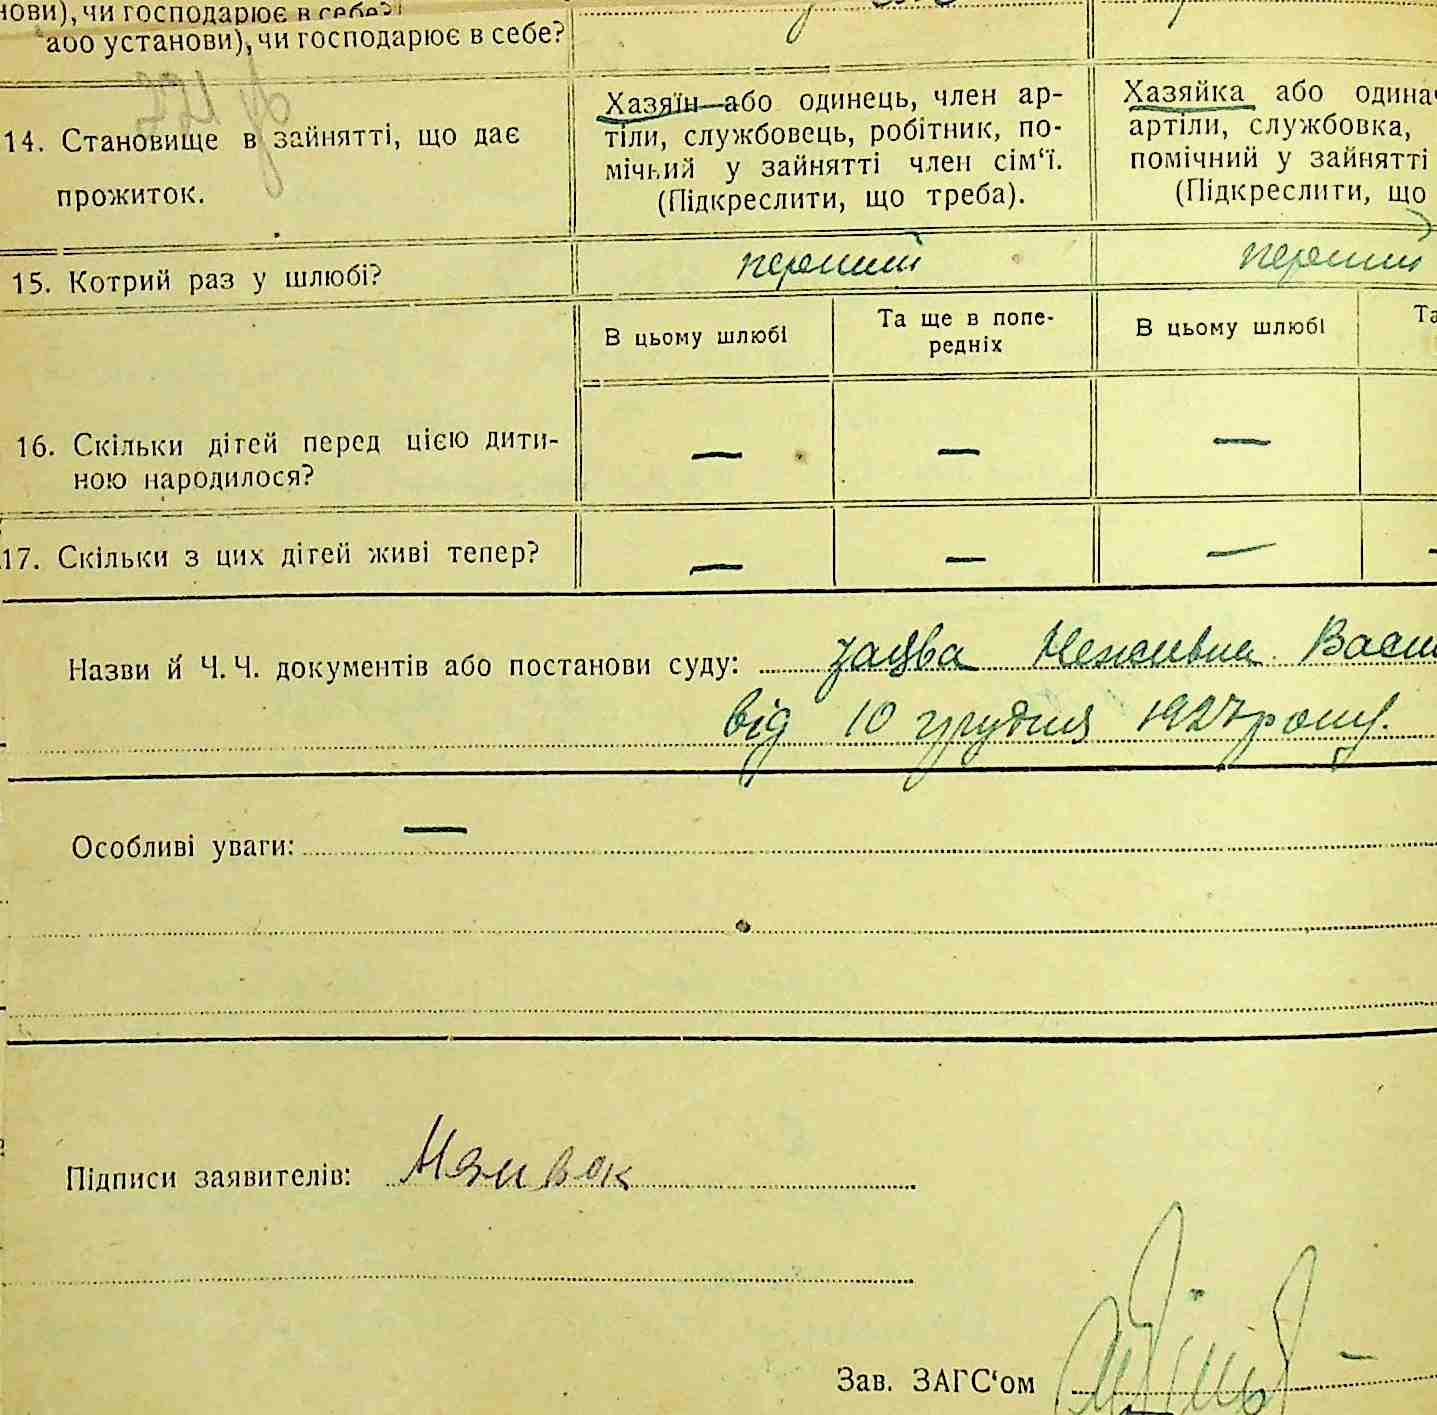 або установи), чи господарює в себе?
14. Становище в зайнятті, що дає
прожиток.
Хазяїн або одинець, член ар-
тіли, службовець, робітник, по-
мічний у зайнятті член сім‘ї.
(Підкреслити, що треба).
Хазяйка або одинач
артіли, службовка,
помічний у зайнятті
(Підкреслити, що
15. Котрий раз у шлюбі?
перший
перший
В цьому шлюбі
Та ще в попе-
редніх
В цьому шлюбі
Та
16. Скільки дітей перед цією дити-
ною народилося?
— — —
17. Скільки з цих дітей живі тепер?
— — — —
Назви й Ч. Ч. документів або постанови суду: заява Неживка Васи
від 10 грудня 1927 року.
Особливі уваги: —
Підписи заявителів:
Зав. ЗАГС‘ом